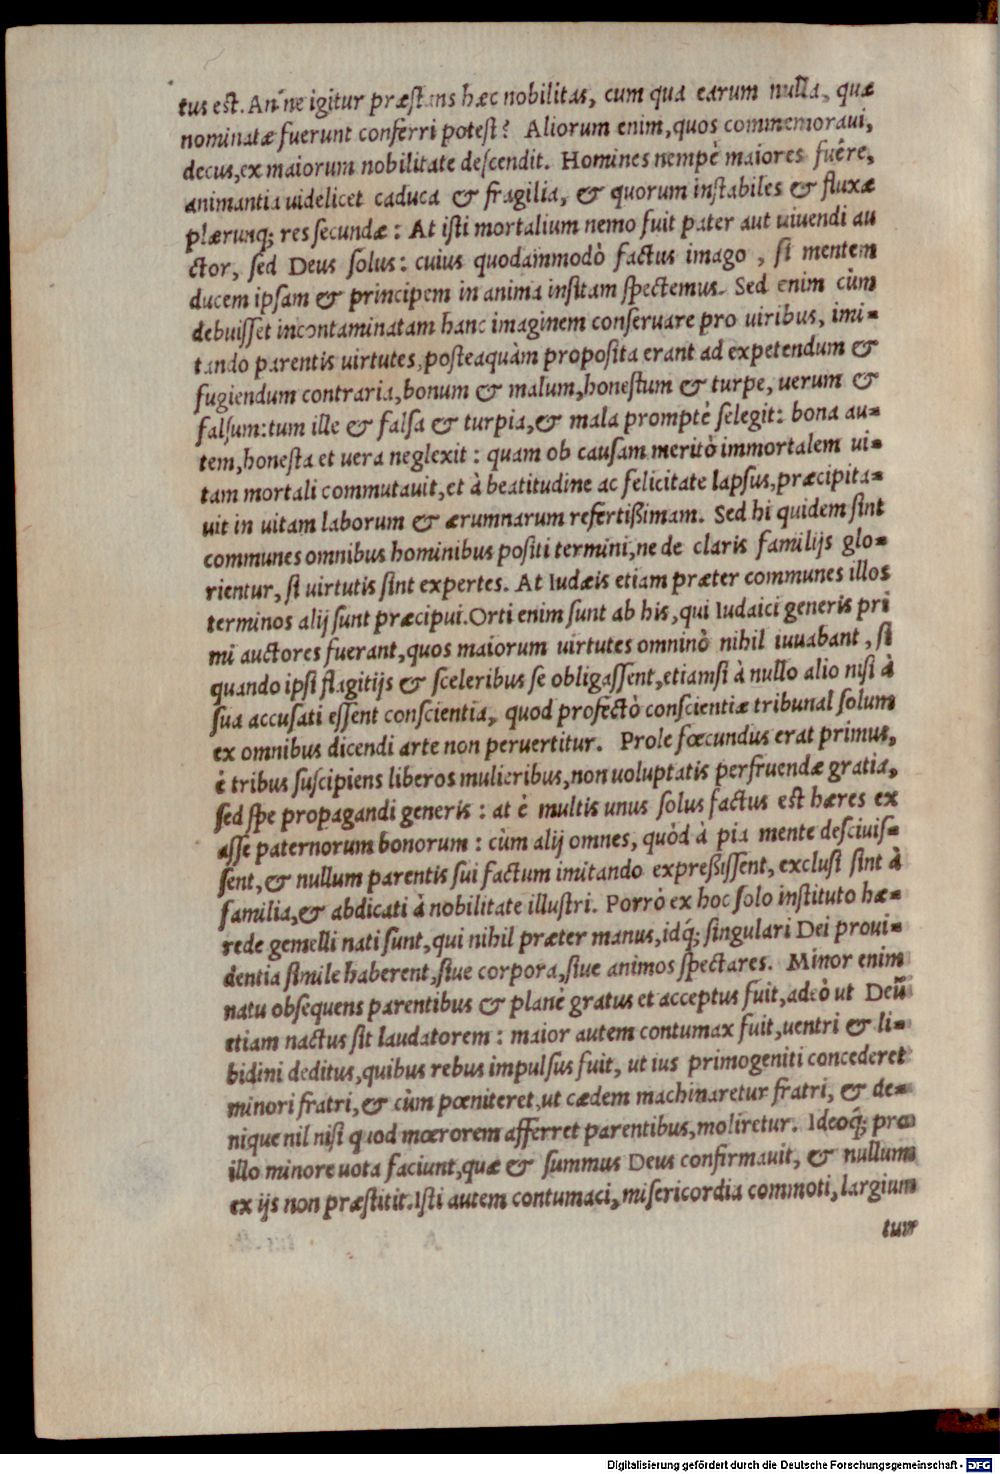 tus est. An'ne igitur præstans hæc nobilitas, cum qua earum nulla, quæ
nominatæ fuerunt conferri potest? Aliorum enim, quos commemoraui,
decus, ex maiorum nobilitate descendit. Homines nempè maiores fuêre,
animantia uidelicet caduca & fragilia, & quorum instabiles & fluxæ
plærunq; res secundæ: At isti mortalium nemo fuit pater aut uiuendi au
ctor, sed Deus solus: cuius quodammodò factus imago, si mentem
ducem ipsam & principem in anima insitam spectemus. Sed enim cùm
debuisset incontaminatam hanc imaginem conseruare pro uiribus, imi-
tando parentis uirtutes, posteaquàm proposita erant ad expetendum &
fugiendum contraria, bonum & malum, honestum & turpe, uerum &
falsum: tum ille & falsa & turpia, & mala promptè selegit: bona au-
tem, honesta et uera neglexit: quam ob causam meritò immortalem ui-
tam mortali commutauit, et à beatitudine ac felicitate lapsus, præcipita-
uit in uitam laborum & ærumnarum refertißimam. Sed hi quidem sint
communes omnibus hominibus positi termini, ne de claris familijs glo-
rientur, si uirtutis sint expertes. At Iudæis etiam præter communes illos
terminos alij sunt præcipui. Orti enim sunt ab his, qui Iudaici generis pri
mi auctores fuerant, quos maiorum uirtutes omninò nihil iuuabant, si
quando ipsi flagitijs & sceleribus se obligassent, etiamsi à nullo alio nisi à
sua accusati essent conscientia, quod profectò conscientiæ tribunal solum
ex omnibus dicendi arte non peruertitur. Prole fœcundus erat primus,
è tribus suscipiens liberos mulieribus, non uoluptatis perfruendæ gratia,
sed spe propagandi generis: at è multis unus solus factus est hæres ex
asse paternorum bonorum: cùm alij omnes, quòd à pia mente desciuis-
sent, & nullum parentis sui factum imitando expreßissent, exclusi sint à
familia, & abdicati à nobilitate illustri. Porrò ex hoc solo instituto hæ-
rede gemelli nati sunt, qui nihil præter manus, idq́; singulari Dei proui-
dentia simile haberent, siue corpora, siue animos spectares. Minor enim
natu obsequens parentibus & planè gratus et acceptus fuit, adeò ut Deũ
etiam nactus sit laudatorem: maior autem contumax fuit, uentri & li-
bidini deditus, quibus rebus impulsus fuit, ut ius primogeniti concederet
minori fratri, & cùm pœniteret, ut cædem machinaretur fratri, & de-
nique nil nisi quod mœrorem afferret parentibus, moliretur. Ideoq́; pro
illo minore uota faciunt, quæ & summus Deus confirmauit, & nullum
ex ijs non præstitit. Isti autem contumaci, misericordia commoti, largiun
tur
Digitalisierung gefördert durch die Deutsche Forschungsgemeinschaft - DFG